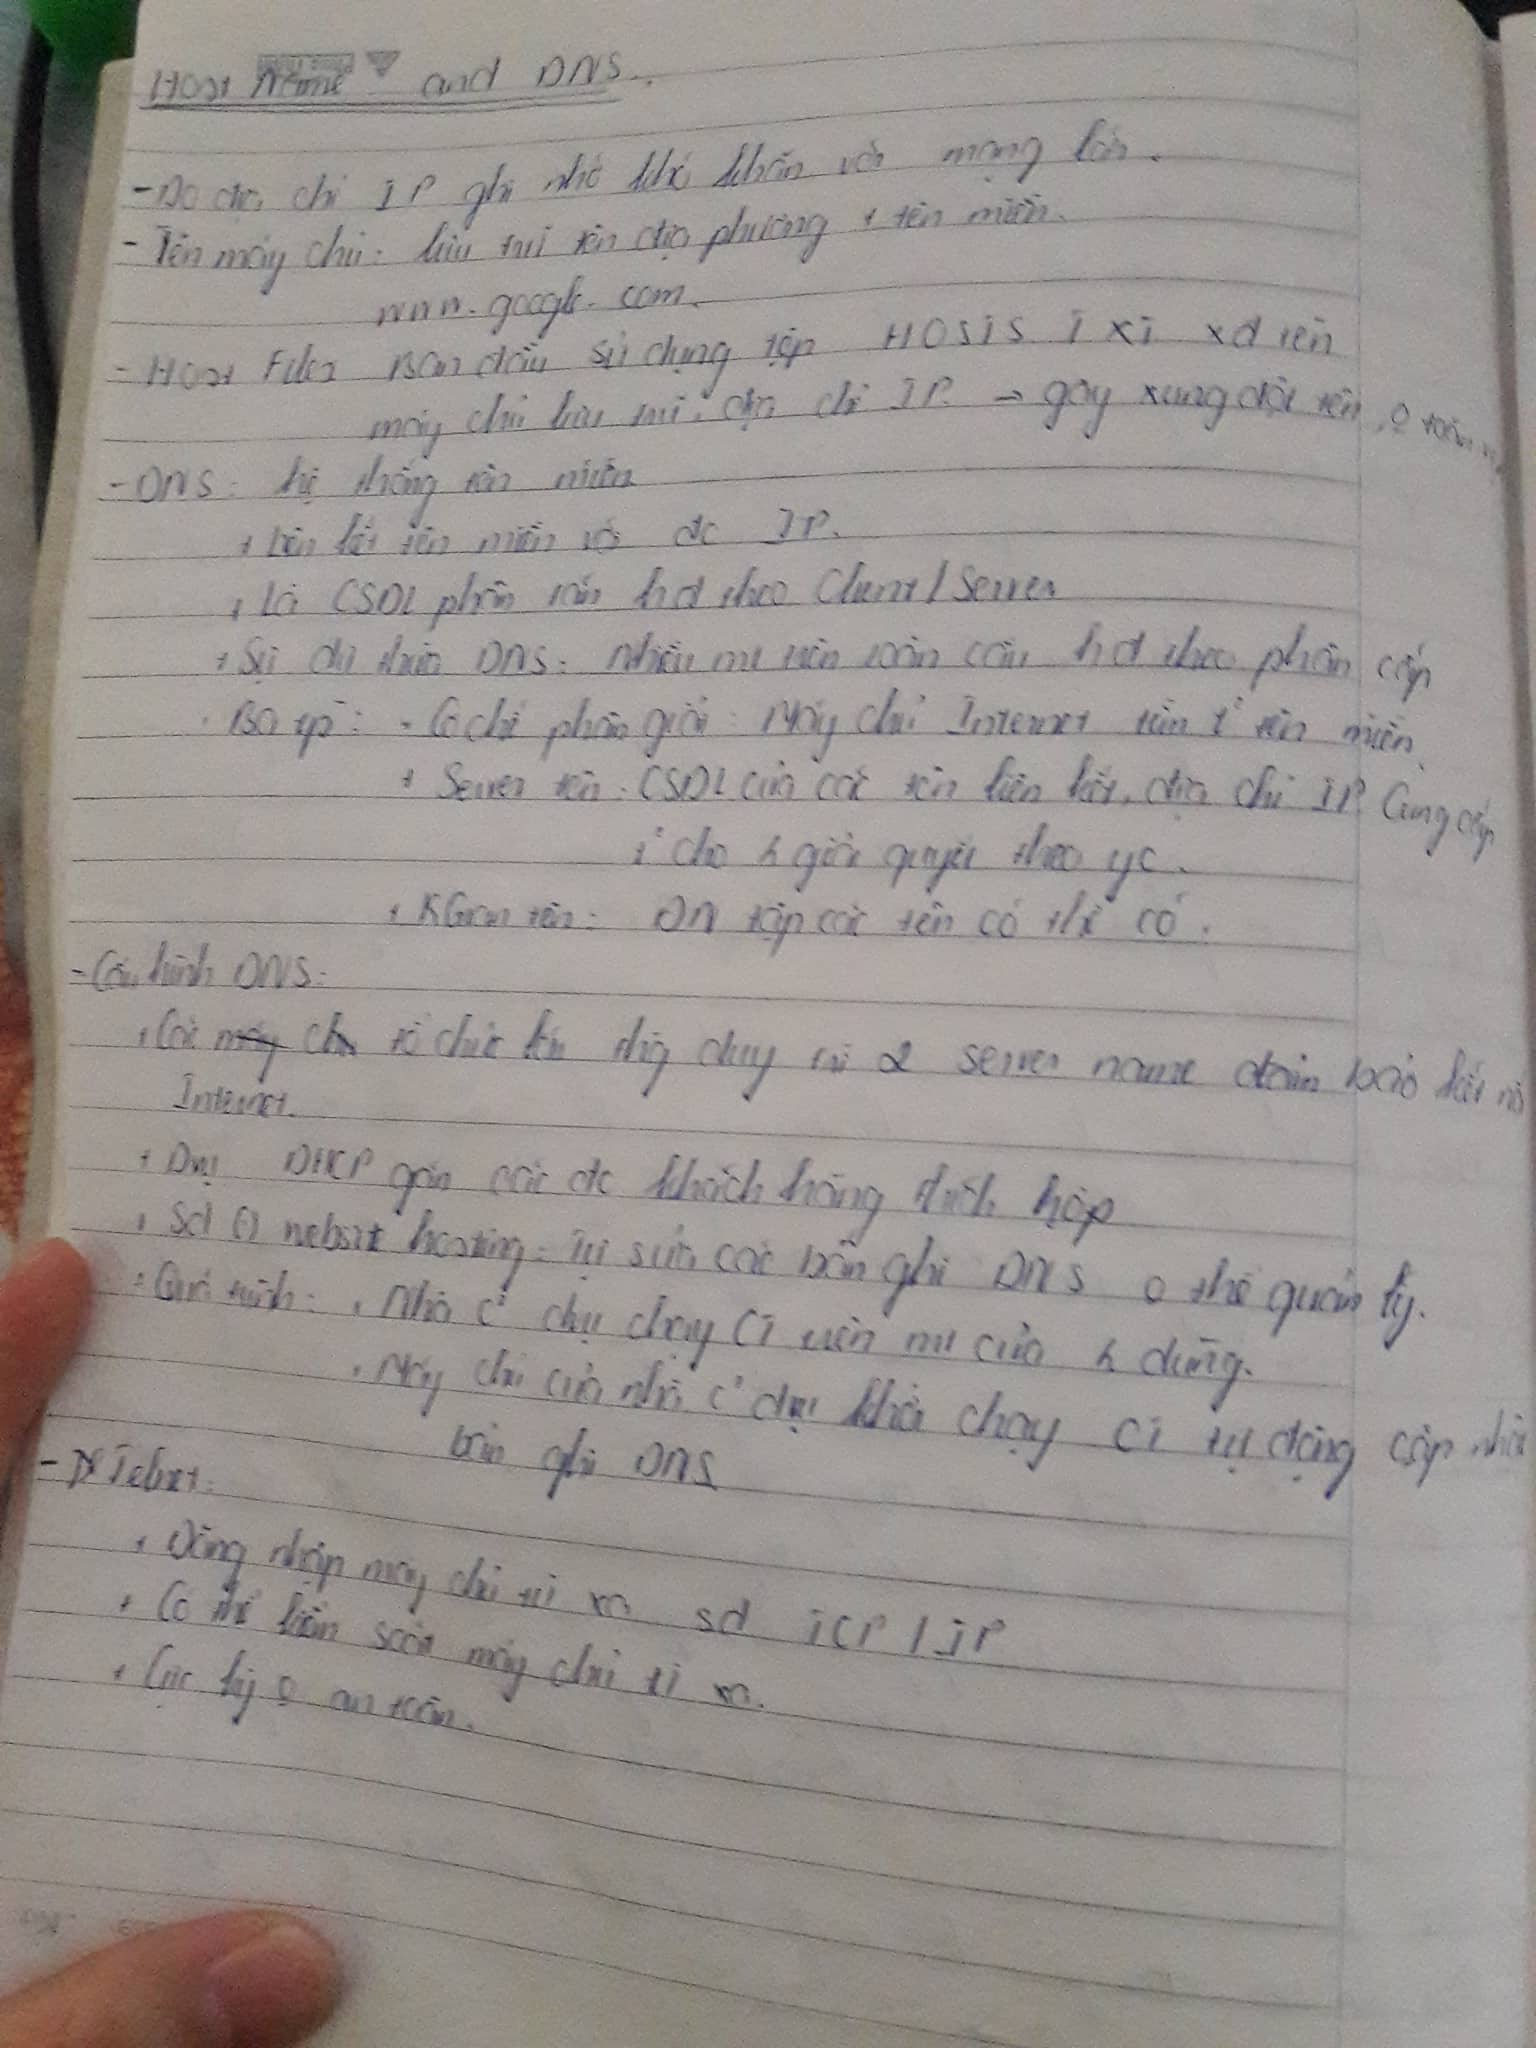 Host Name and DNS.
- Do địa chỉ IP ghi nhớ khó khăn với mạng lớn.
- Tên máy chủ: lưu trữ tên địa phương + tên miền.
www.google.com.
- Host Files Ban đầu sử dụng tệp HOSTS.TXT xđ tên
máy chủ lưu trữ, địa chỉ IP. → gây xung đột tên, 0 toàn
- DNS: hệ thống tên miền
+ Liên kết tên miền với đc IP.
+ Là CSDL phân tán hđ theo Client/Server
+ Sự dư thừa DNS: nhiều mt trên toàn cầu hđ theo phân cấp
Ba tp: - Cơ chế phân giải: Máy chủ Internet tên miền.
+ Server tên: CSDL của các tên liên kết, địa chỉ IP. Cung cấp
cho giải quyết theo yc.
+ KGian tên: DN tập các tên có thể có.
- Cấu hình DNS:
+ Các tổ chức lớn thg duy trì 2 server name đảm bảo kết nối
Internet.
+ DHCP gán các đc khách hàng thích hợp
+ Sd website hosting: Tự sửa các bản ghi DNS 0 thể quản lý.
+ Quá trình: + Nhà chạy trên mt của dùng.
+ Máy chủ của nhà khởi chạy tự động cập nhật
bản ghi DNS
- Telnet:
+ Đăng nhập máy chủ từ xa sd TCP/IP
+ Có thể kiểm soát máy chủ từ xa.
+ Cực kỳ 0 an toàn.